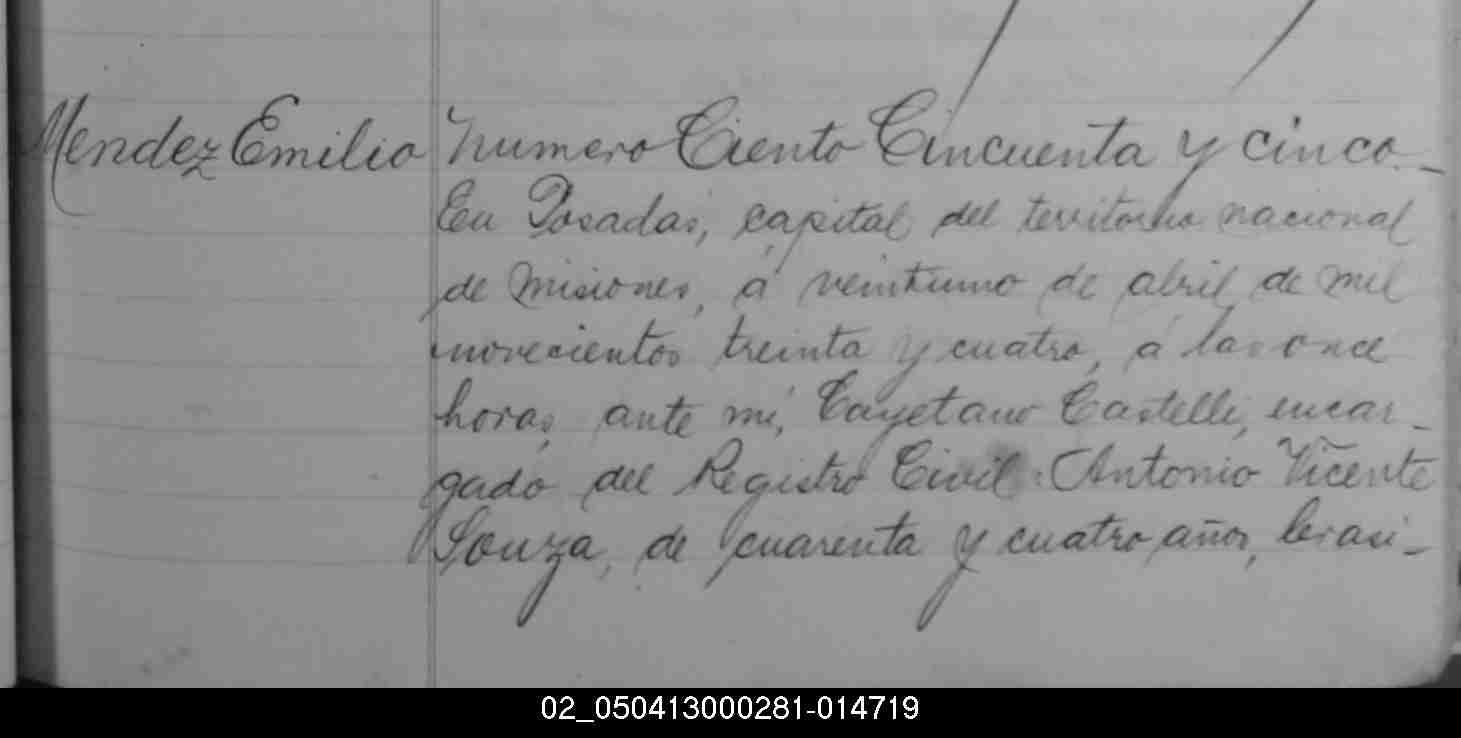 Mendez Emilio
Numero Ciento Cincuenta y cinco._
En Posadas, capital del territorio nacional
de Misiones, á veintiuno de abril de mil
novecientos treinta y cuatro, á las once
horas, ante mí, Cayetano Castelli, encar_
gado del Registro Civil: Antonio Vicente
Souza, de cuarenta y cuatro años, brasi_
02_050413000281-014719